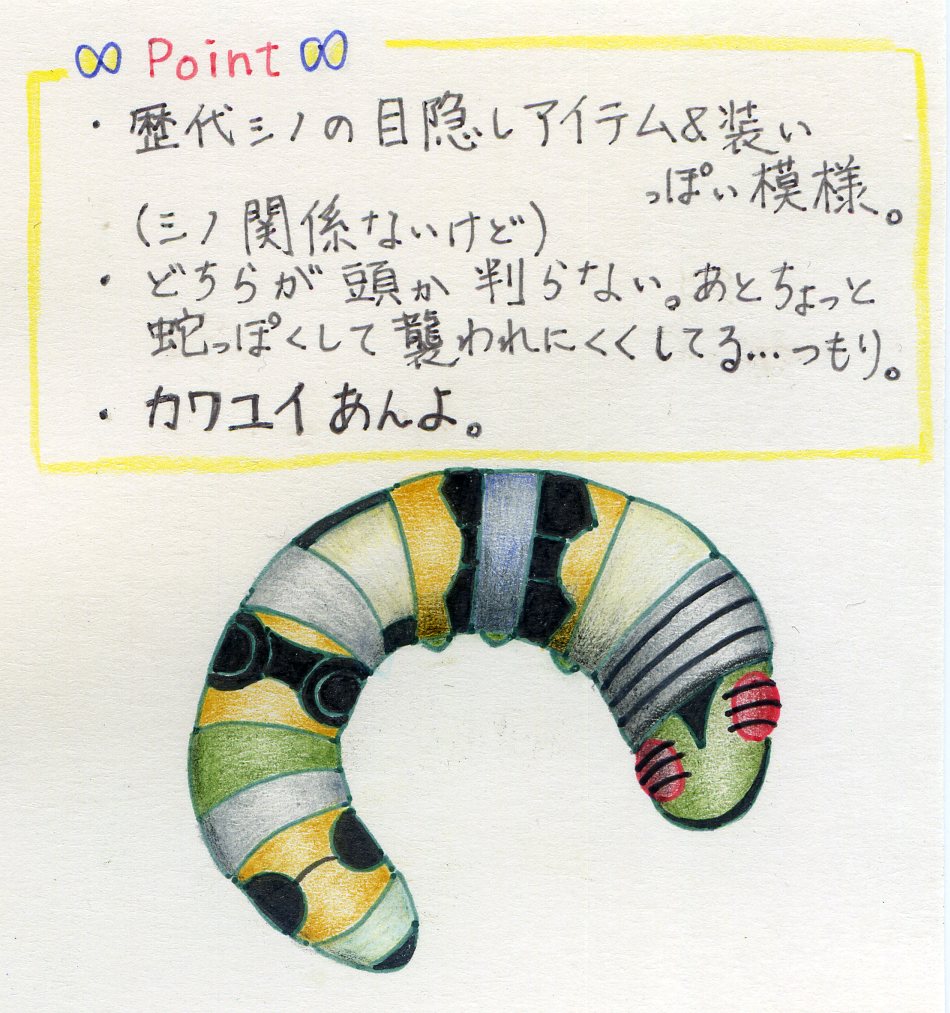 ∞ Point ∞
・歴代シノの目隠しアイテム&装い
っぽい模様。
(シノ関係ないけど)
・どちらが頭か判らない。あとちょっと
蛇っぽくして襲われにくくしてる…つもり。
・カワユイあんよ。